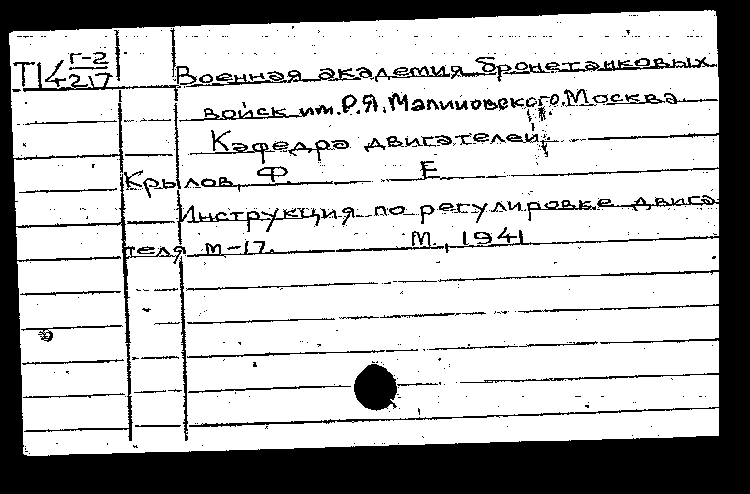 П4 Г-2/217 Военная академия бронетанковых
войск им. Р.Я. Малиновского, Москва
Кафедра двигателей.
Крылов, Ф. Е
Инструкция по регулировке двига
теля м-17. М., 1941